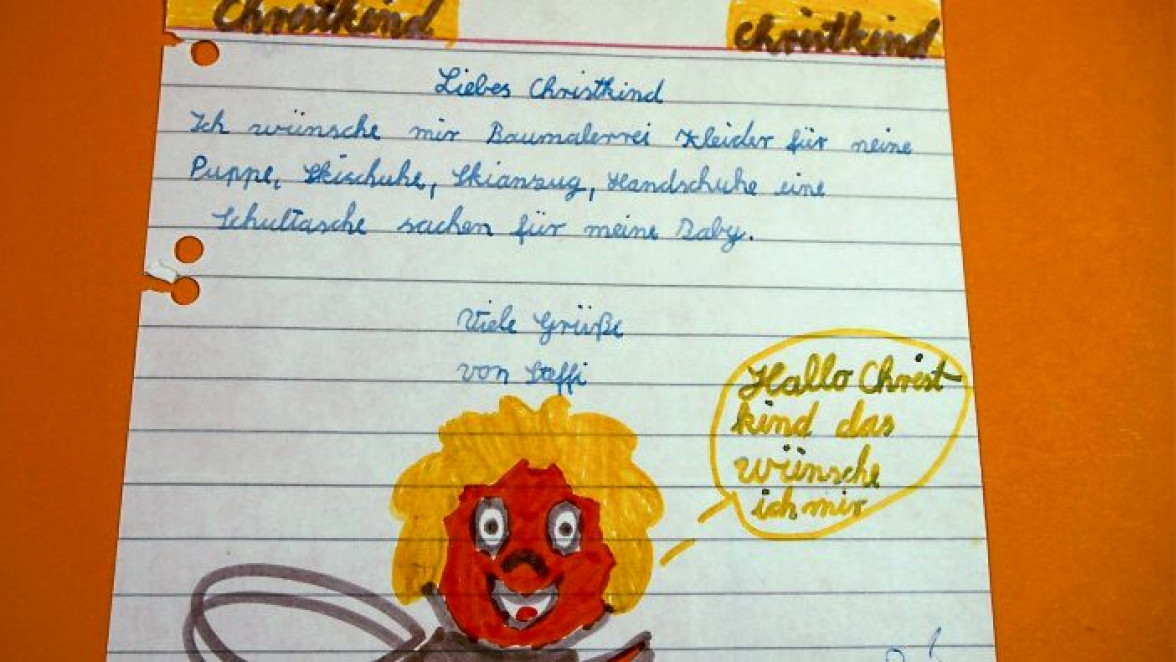 Christkind christkind
Liebes Christkind
Ich wünsche mir Baumalerrei Kleider für neine
Puppe, Skischuhe, Skianzug, Handschuhe eine
Schultasche sachen für meine Baby.
Viele Grüße
von Steffi
Hallo Christ-
kind das
wünsche
ich mir